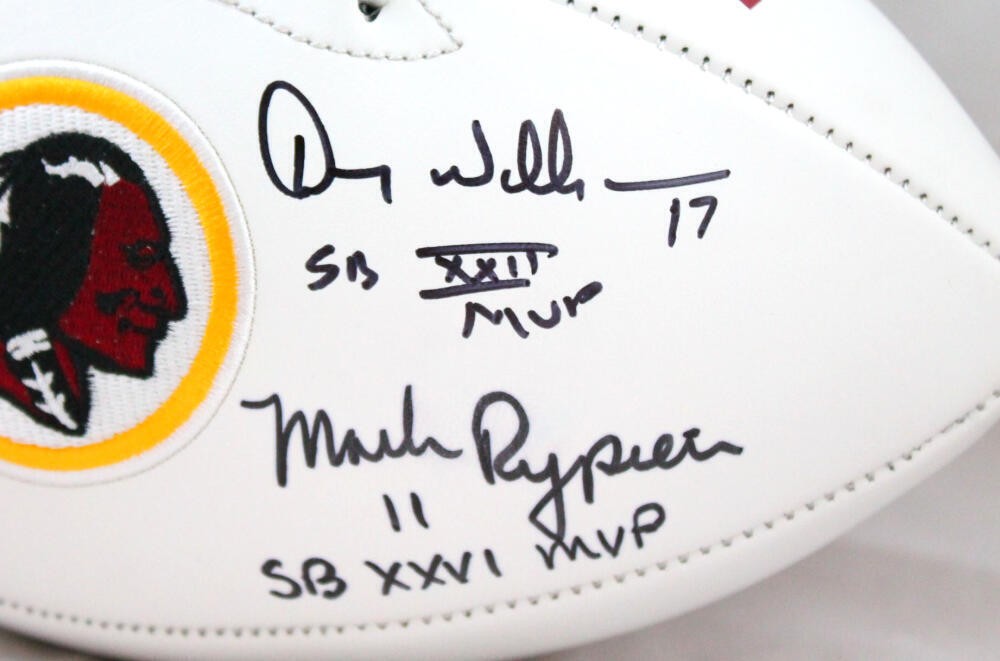 Doug Williams 17
SB XXII
MVP
Mark Rypien
11
SB XXVI MVP